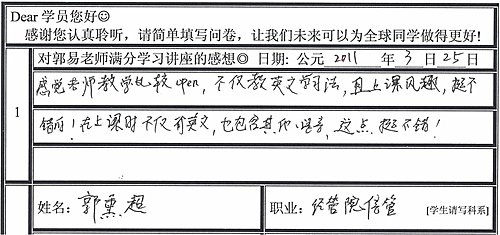 Dear 学员您好☺
感谢您认真聆听，请简单填写问卷，让我们未来可以为全球同学做得更好！
1
对郭易老师满分学习讲座的感想◎ 日期: 公元 2011 年 3 月 25 日
感觉老师教学比较open，不仅教英文学习法，且上课风趣，挺不
错的！在上课时不仅有英文，也包含其他语言，这点挺不错！
姓名: 郭熏超
职业: 经管院信管 [学生请写科系]